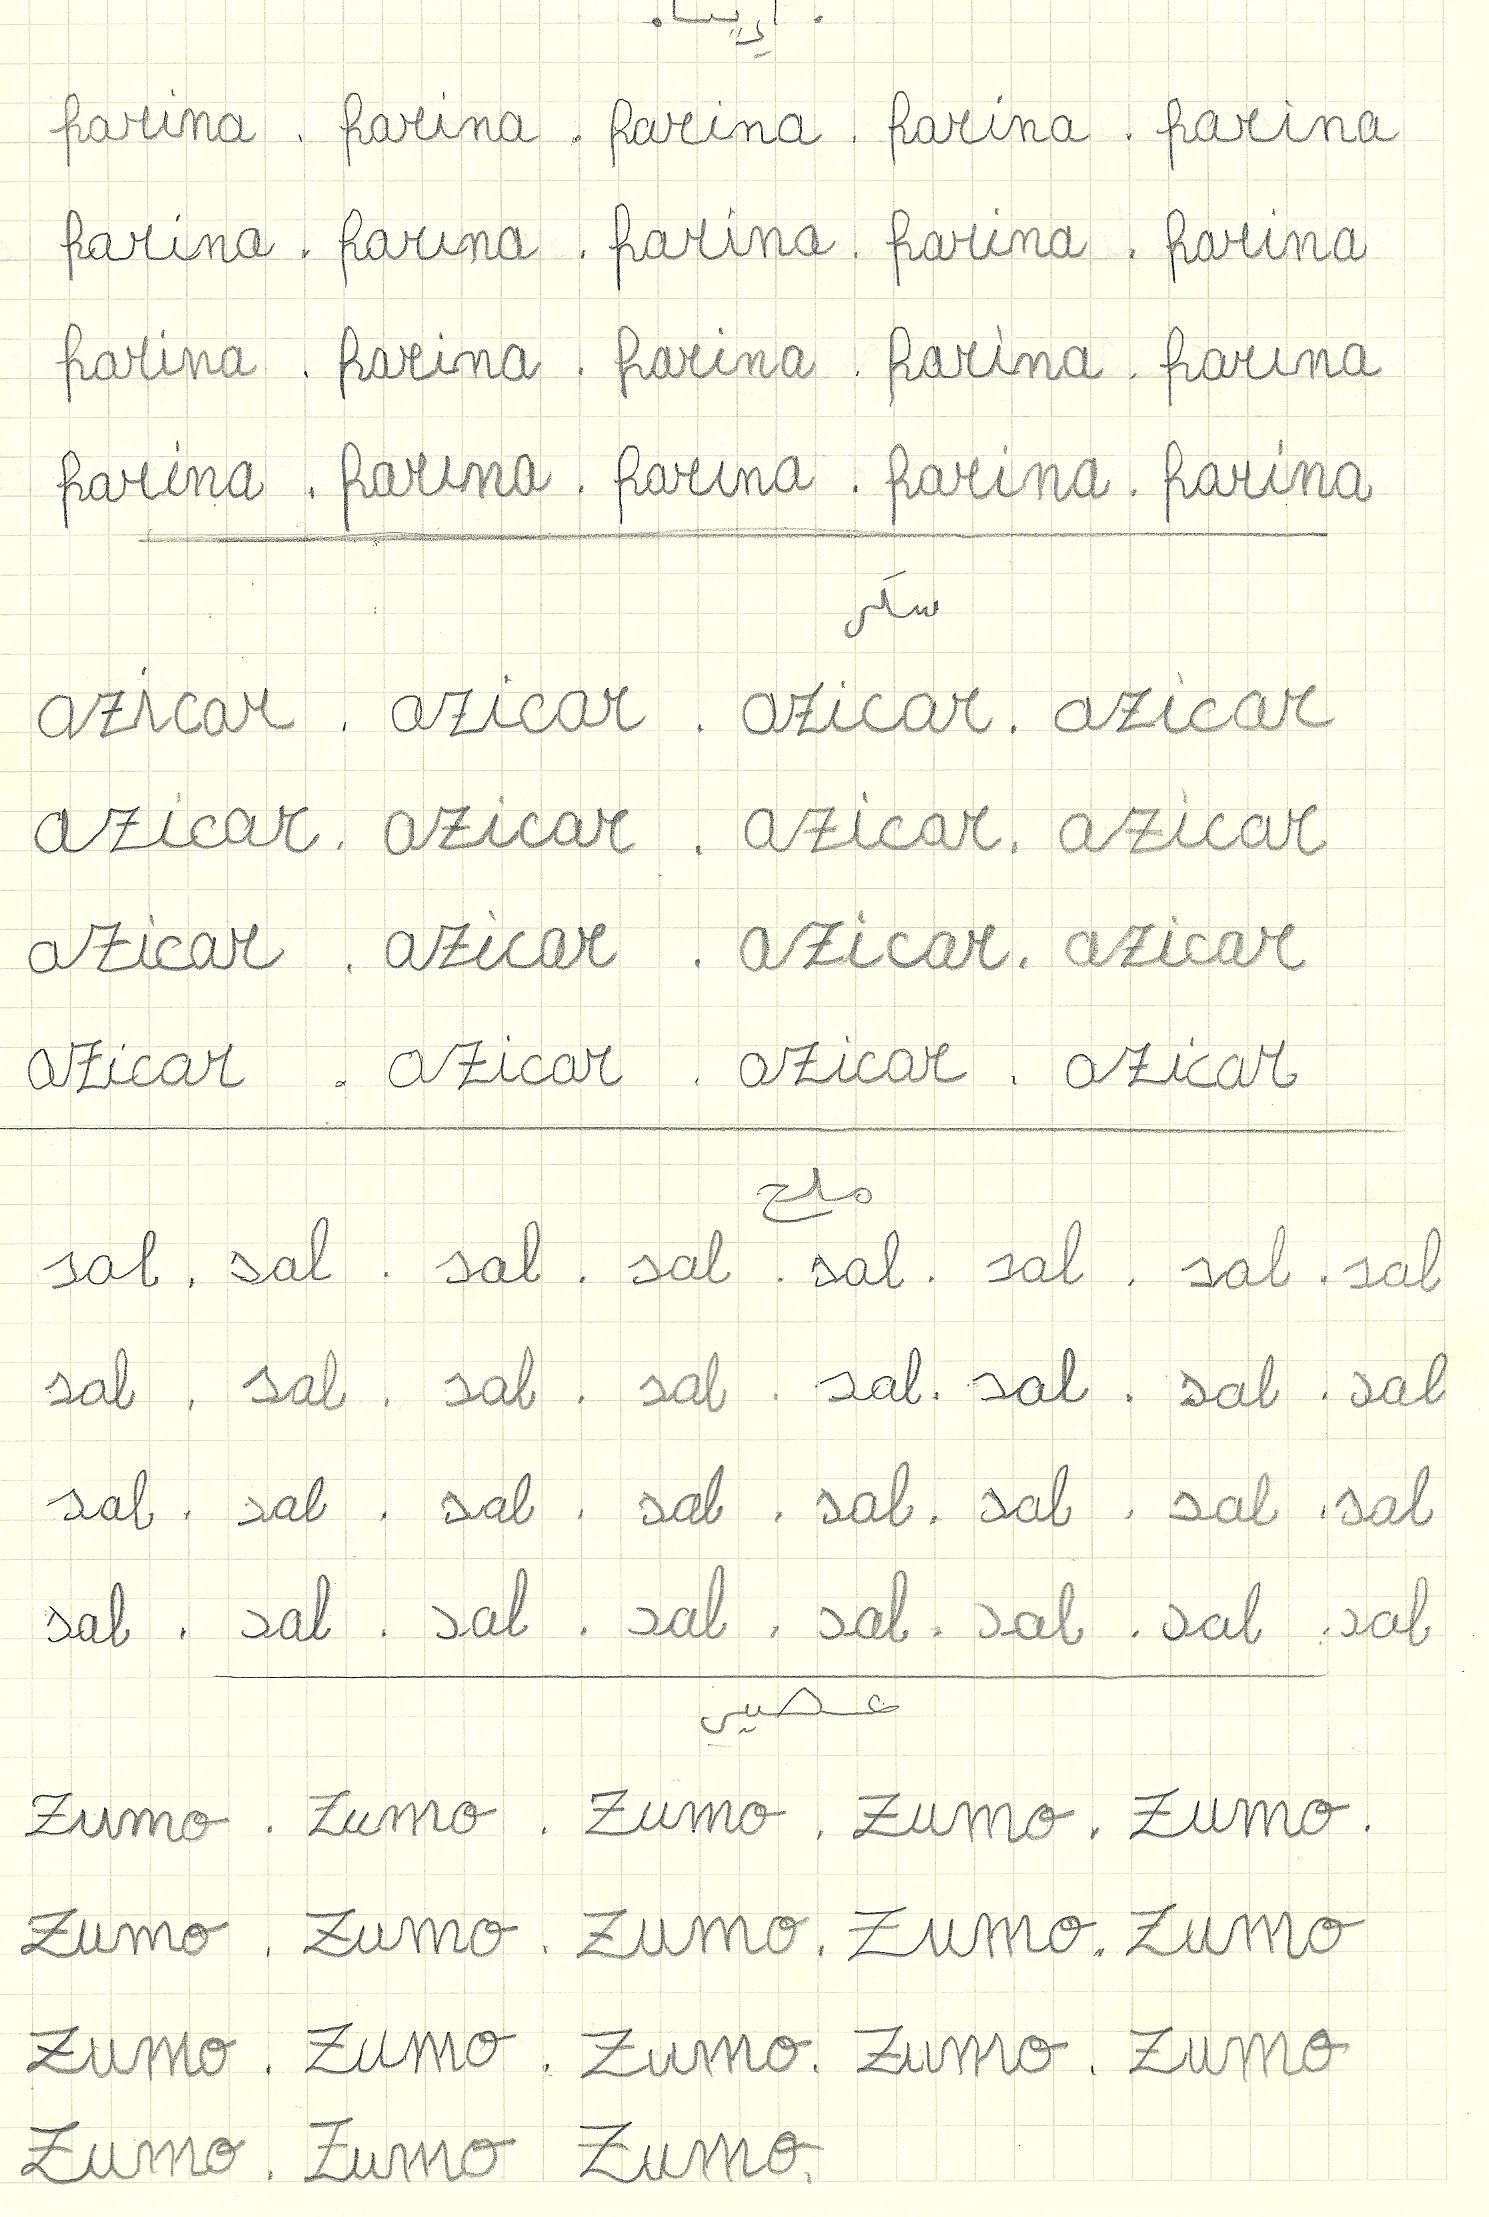 harina . harina . harina . harina . harina
harina . harina . harina . harina . harina
harina . harina . harina . harina . harina
harina . harina . harina . harina . harina
سكر
azicar . azicar . azicar . azicar
azicar . azicar . azicar . azicar
azicar . azicar . azicar . azicar
azicar . azicar . azicar . azicar
ملح
sal . sal . sal . sal . sal . sal . sal . sal
sal . sal . sal . sal . sal . sal . sal . sal
sal . sal . sal . sal . sal . sal . sal . sal
sal . sal . sal . sal . sal . sal . sal . sal
عصير
Zumo . Zumo . Zumo . Zumo . Zumo .
Zumo . Zumo . Zumo . Zumo . Zumo
Zumo . Zumo . Zumo . Zumo . Zumo
Zumo . Zumo Zumo .